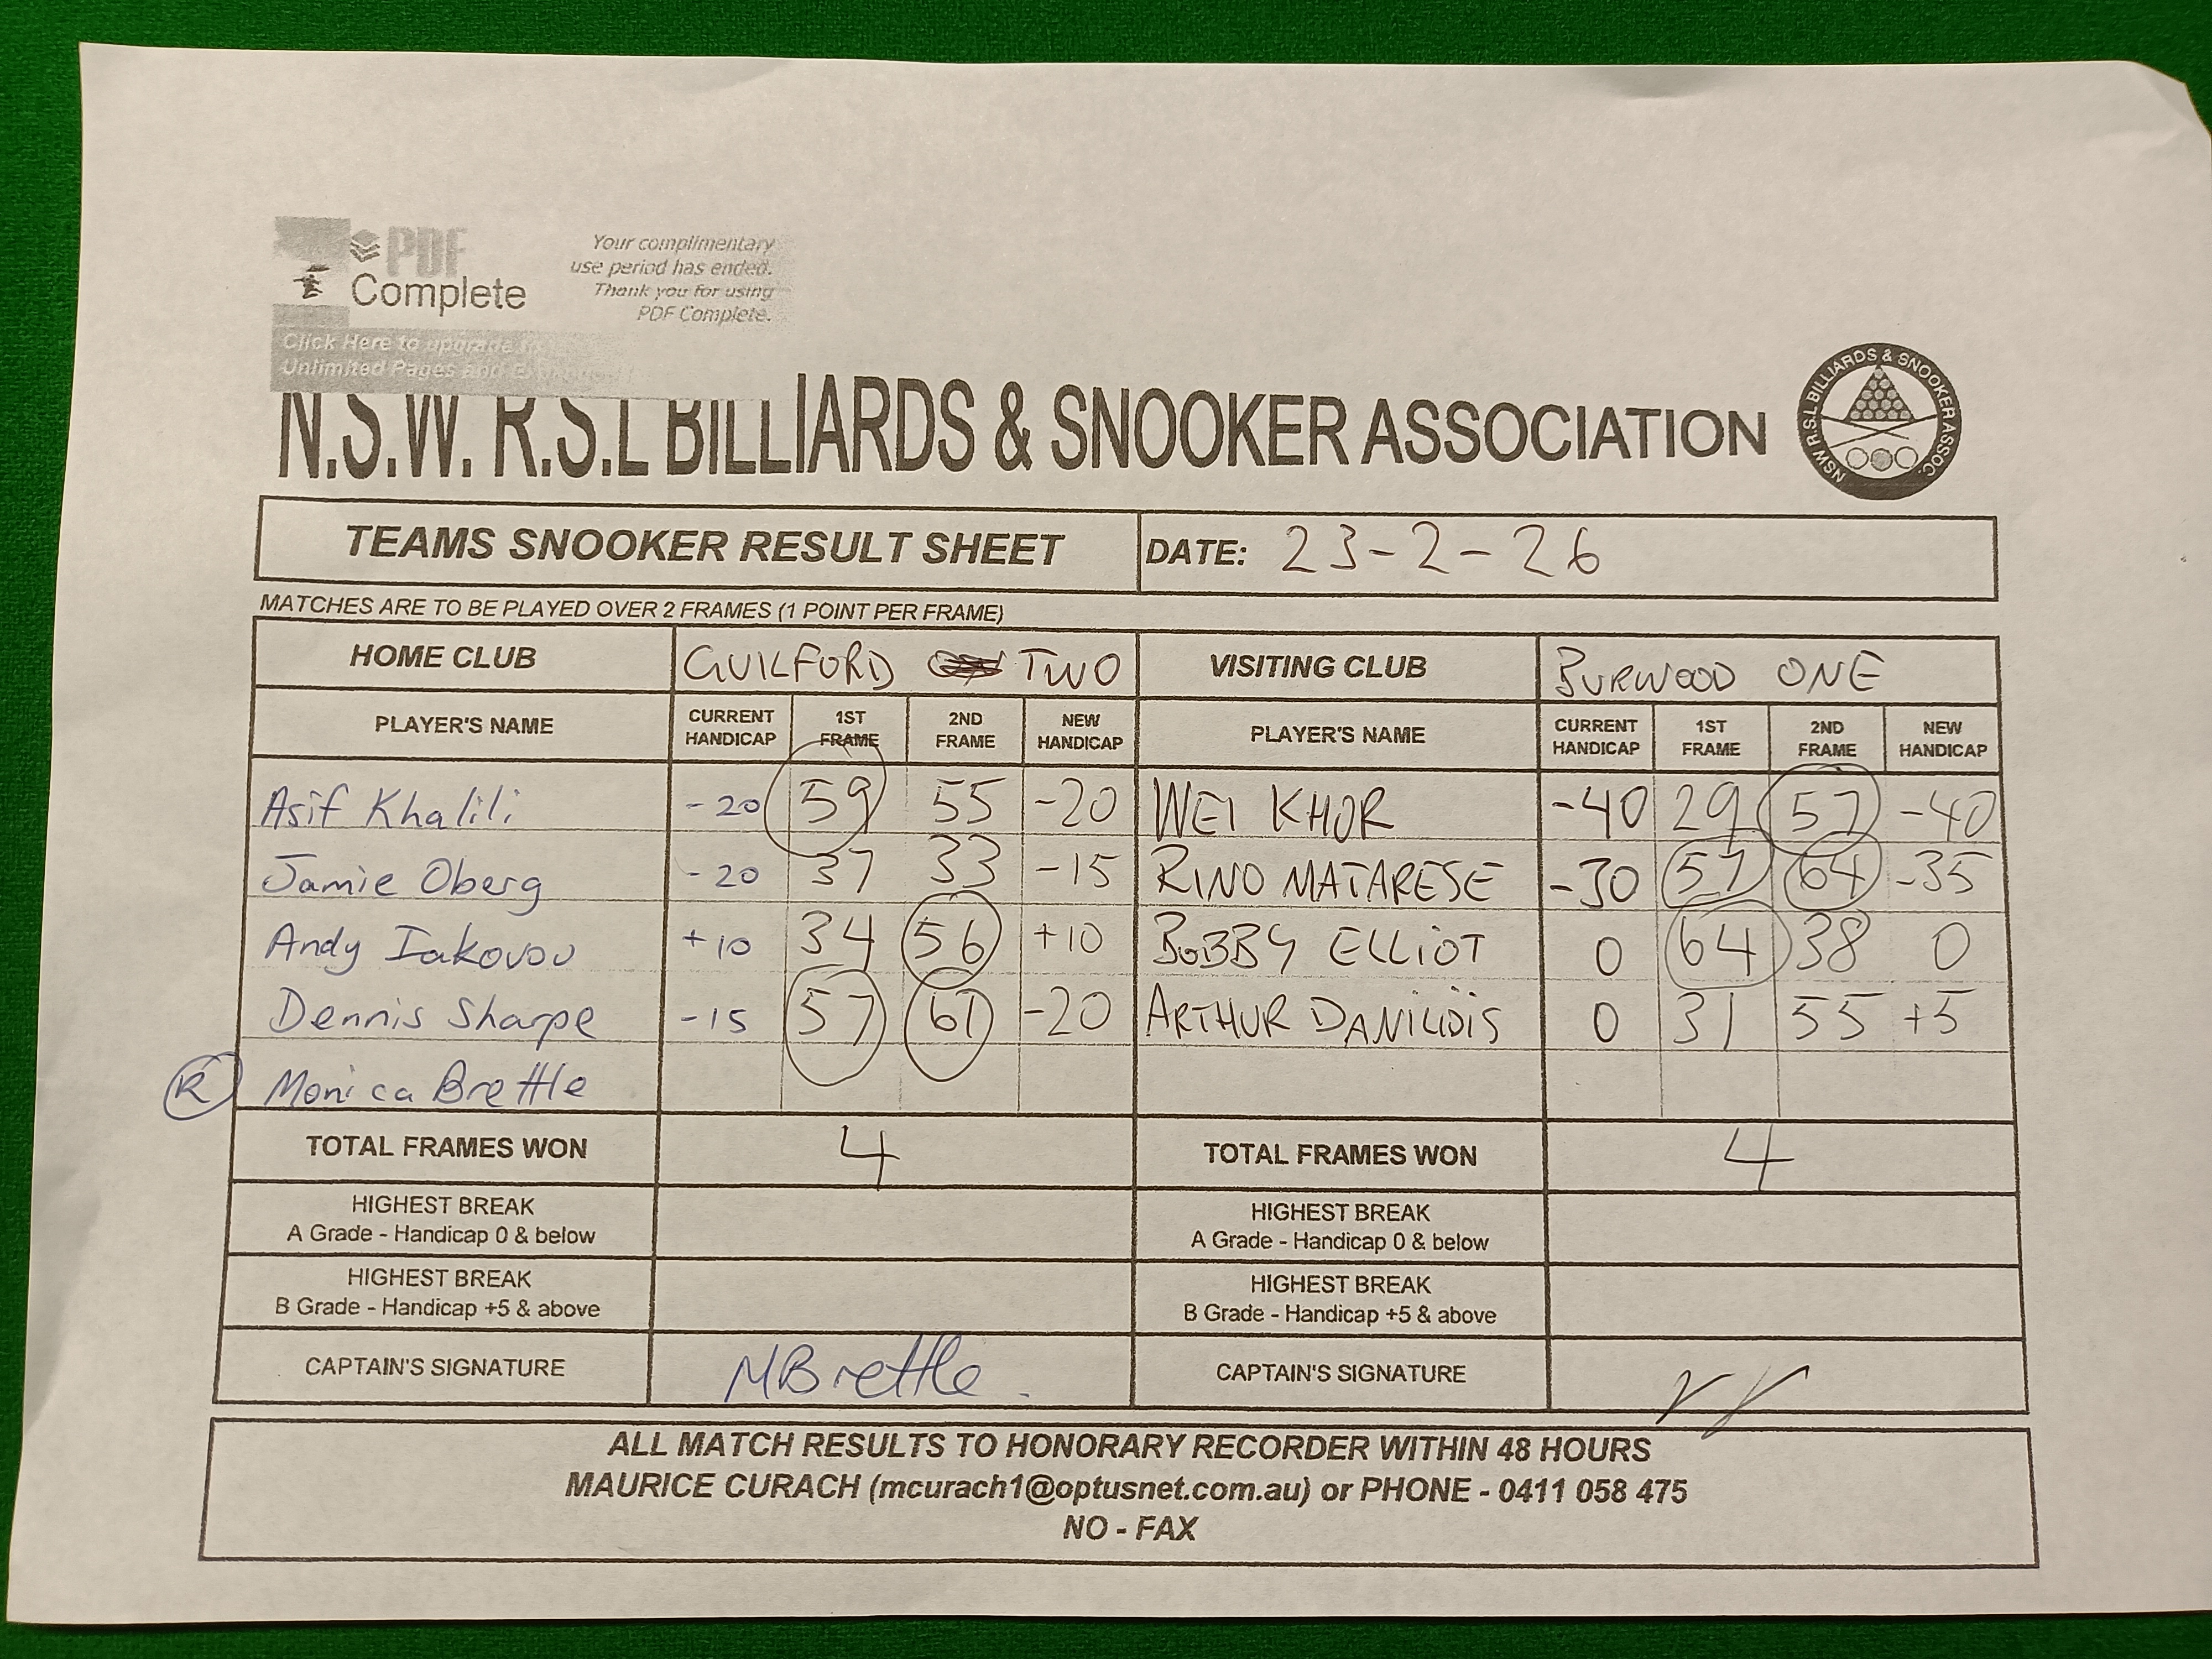 PDF
Complete
Your complimentary
use period has ended.
Thank you for using
PDF Complete.
Click Here to upgrade
Unlimited Pages and
N.S.W. R.S.L BILLIARDS & SNOOKER ASSOCIATION
NSW R.S.L BILLIARDS & SNOOKER ASSOC.
TEAMS SNOOKER RESULT SHEET DATE: 23-2-26
MATCHES ARE TO BE PLAYED OVER 2 FRAMES (1 POINT PER FRAME)
HOME CLUB GUILFORD TWO VISITING CLUB BURWOOD ONE
PLAYER'S NAME CURRENT HANDICAP 1ST FRAME 2ND FRAME NEW HANDICAP PLAYER'S NAME CURRENT HANDICAP 1ST FRAME 2ND FRAME NEW HANDICAP
Asif Khalili -20 59 55 -20 WEI KHOR -40 29 57 -40
Jamie Oberg -20 37 33 -15 RINO MATARESE -30 57 64 -35
Andy Iakovou +10 34 56 +10 BOBBY ELLIOT 0 64 38 0
Dennis Sharpe -15 57 61 -20 ARTHUR DANILIDIS 0 31 55 +5
R Monica Brettle
TOTAL FRAMES WON 4 TOTAL FRAMES WON 4
HIGHEST BREAK HIGHEST BREAK
A Grade - Handicap 0 & below A Grade - Handicap 0 & below
HIGHEST BREAK HIGHEST BREAK
B Grade - Handicap +5 & above B Grade - Handicap +5 & above
CAPTAIN'S SIGNATURE MBrettle. CAPTAIN'S SIGNATURE
ALL MATCH RESULTS TO HONORARY RECORDER WITHIN 48 HOURS
MAURICE CURACH (mcurach1@optusnet.com.au) or PHONE - 0411 058 475
NO - FAX